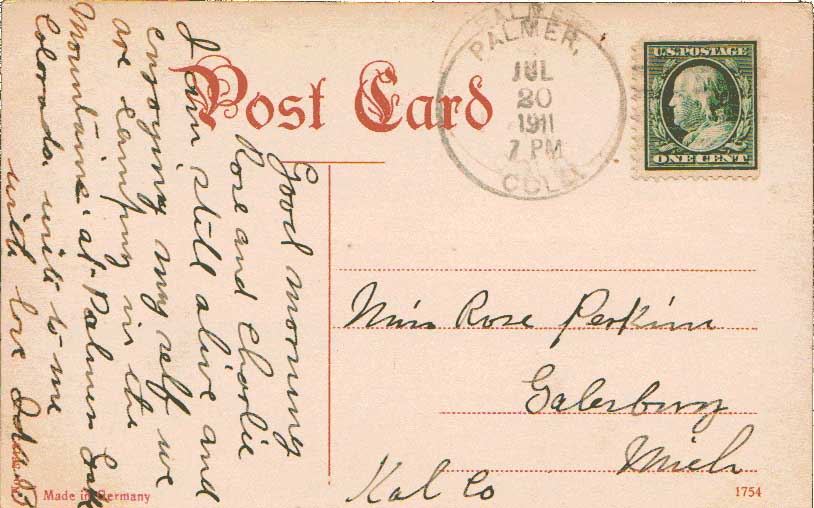 Post Card
PALMER,
JUL
20
1911
7 PM
COLO.
U.S. POSTAGE
ONE CENT
Good morning
Rose and Charlie
I am still alive and
enjoying my self we
are camping in the
Mountains at Palmer Lake
Colorado write to me
with love Ida
Miss Rose Perkins
Galesburg
Mich
Kal Co
Made in Germany
1754